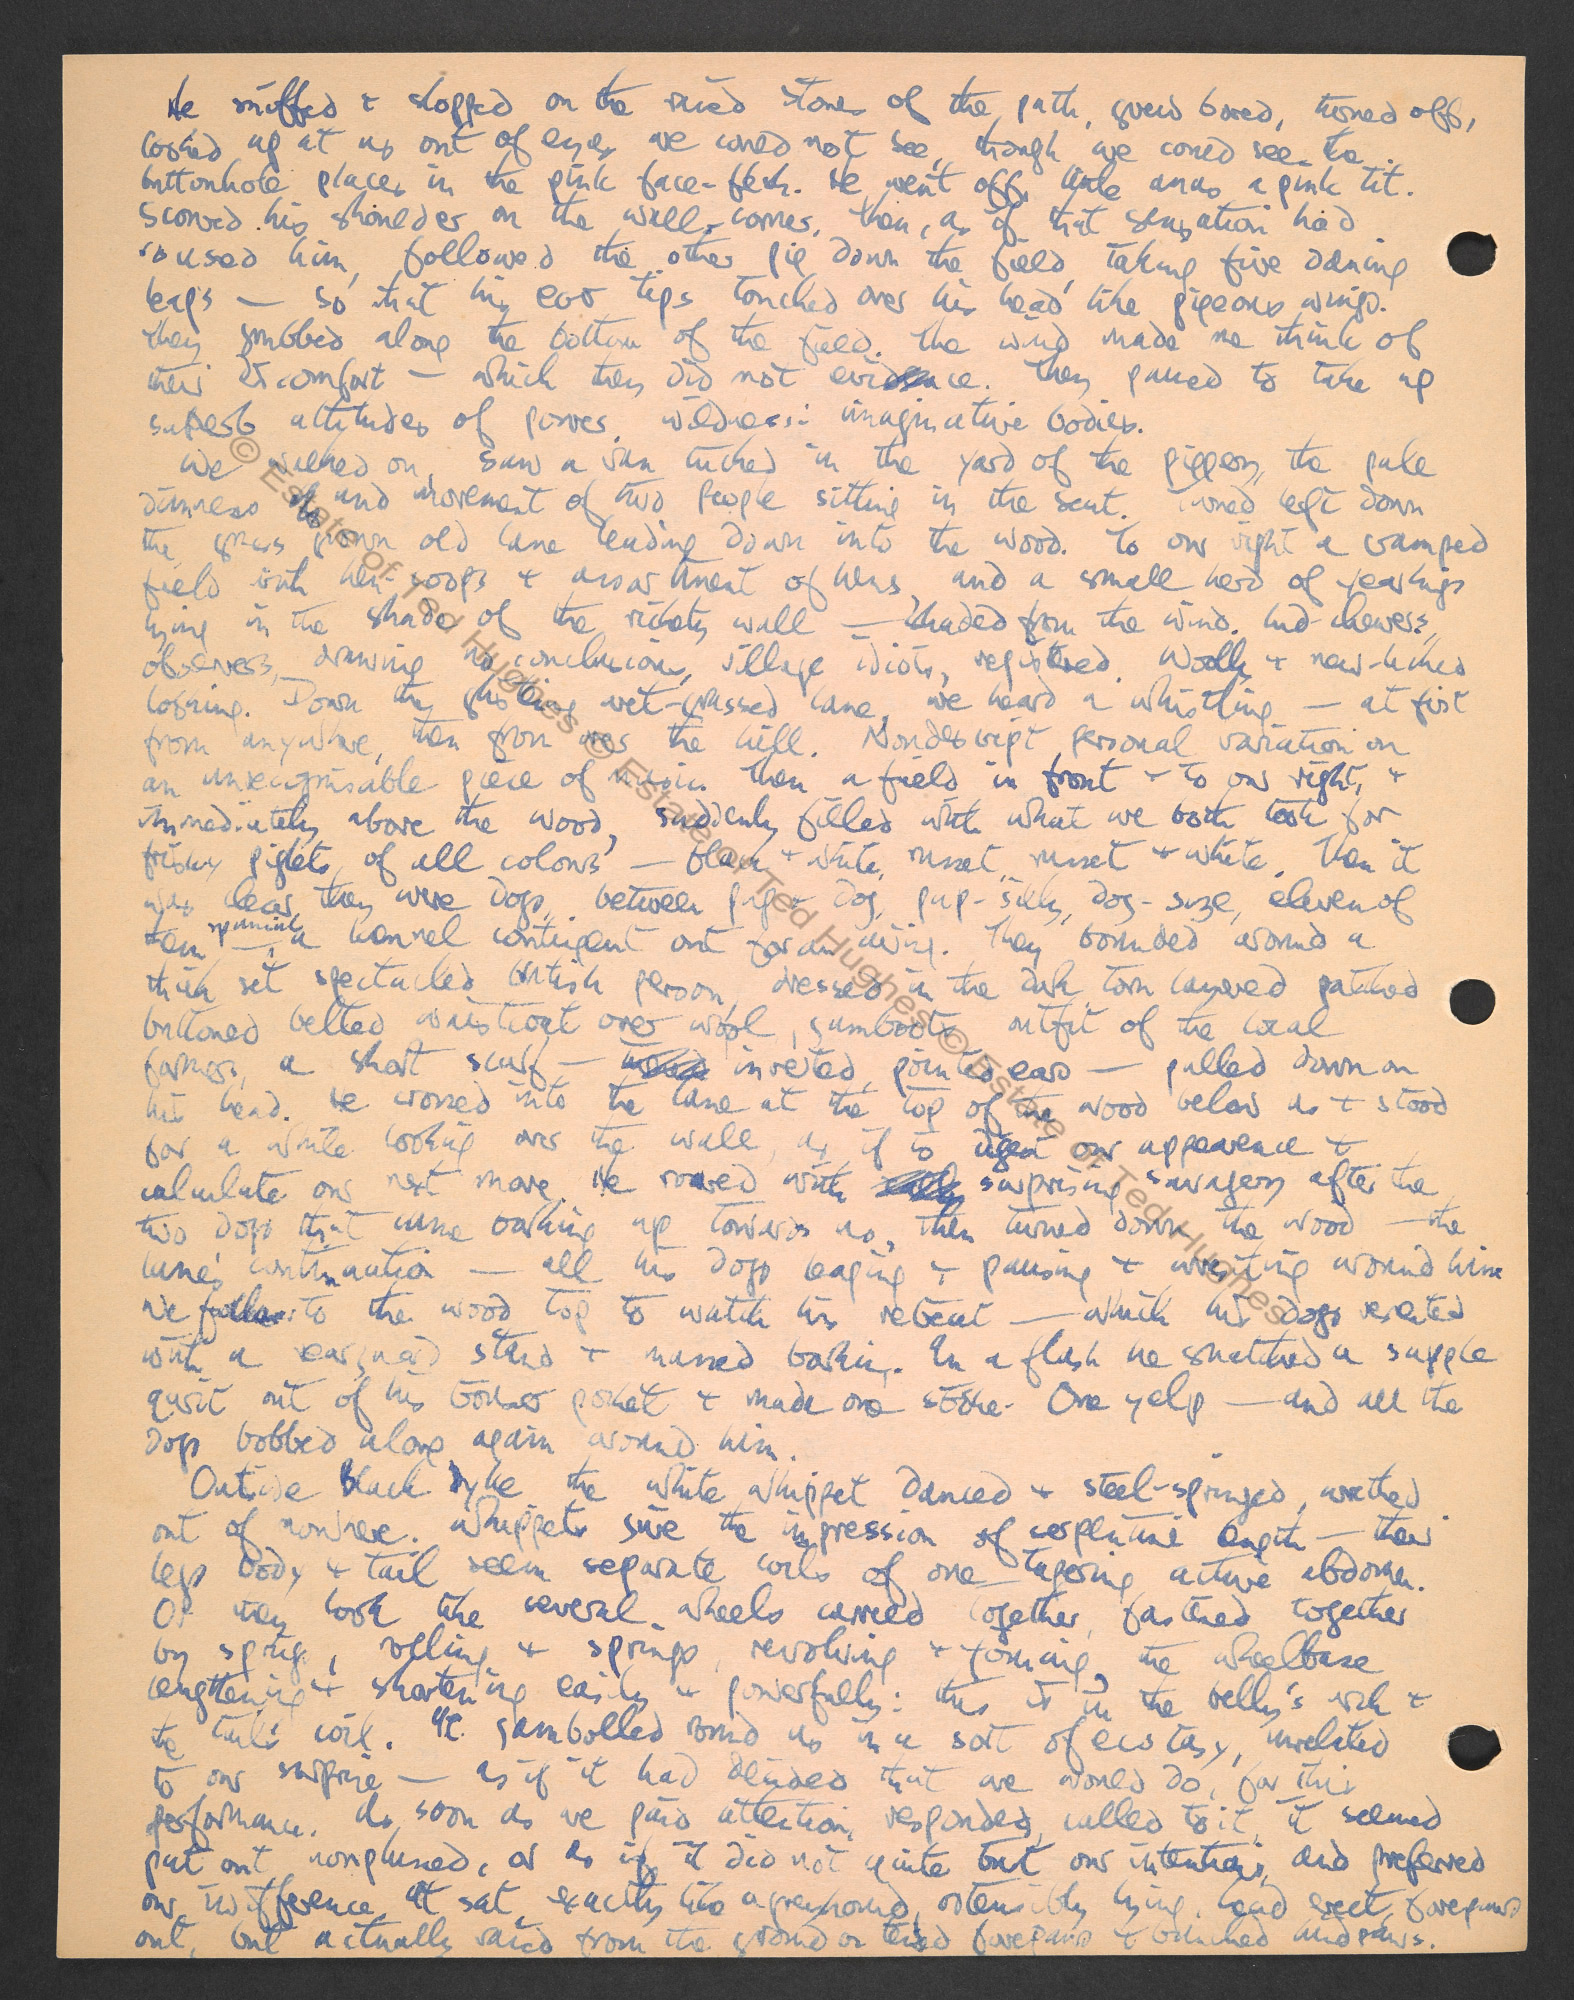 He sniffed & slopped on the raised stones of the path, grew bored, turned off,
looked up at us out of eyes we could not see, though we could see the
buttonhole places in the pink face-flesh. He went off, little anus a pink tit.
Scoured his shoulder on the wall-corner, then, as if that sensation had
roused him, followed the other pig down the field taking five dancing
leaps — so that his ear tips touched over his head like pigeons wings.
They snubbed along the bottom of the field. The wind made me think of
their discomfort — which they did not evidence. They paused to take up
superb attitudes of power, wildness: imaginative bodies.
We walked on, saw a van tucked in the yard of the piggery, the pale
dimness and movement of two people sitting in the seat. Turned left down
the grass grown old lane leading down into the wood. To our right a cramped
field with hen-coops & assortment of hens, and a small herd of yearlings
lying in the shade of the rickety wall — shaded from the wind. Cud-chewers,
observers, drawing no conclusions, village idiots, registered. Woolly & new-licked
looking. Down the wet-grassed lane, we heard a whistling — at first
from anywhere, then from over the hill. Nondescript personal variation on
an unrecognisable piece of music. Then a field in front & to our right, &
immediately above the wood, suddenly filled with what we both took for
frisky piglets of all colours — black & white, russet, russet & white. Then it
was clear they were dogs, between pug & dog, pup-silly, dog-size, eleven of
them — a spaniel kennel contingent out for an airing. They bounded around a
thick set spectacled British person, dressed in the dark torn layered patched
buttoned belted waistcoat over wool, gumboots outfit of the local
farmers, a short scarf — inverted, pointed ears — pulled down on
his head. He crossed into the lane at the top of the wood below us & stood
for a while looking over the wall, as if to digest our appearance &
calculate our next move. He roared with surprising savagery after the
two dogs that came barking up towards us, then turned down the wood — the
lane's continuation — all his dogs leaping & pausing & arresting around him
We follow to the wood top to watch his retreat — which his dogs resented
with a rearguard stand & massed barking. In a flash he snatched a supple
quirt out of his trouser pocket & made one stroke. One yelp — and all the
dogs bobbed along again around him.
Outside Black Dyke the white whippet danced & steel-springed, writhed
out of nowhere. Whippets give the impression of serpentine length — their
legs body & tail seem separate coils of one tapering active abdomen.
Or they look like several wheels carried together, fastened together
by springs, rolling & springs, revolving & forming, the wheelbase
lengthening & shortening easily & powerfully: this is in the belly's arch &
the tail's coil. It gambolled round us in a sort of ecstasy, unrelated
to our surprise — as if it had decided that we would do, for this
performance. As soon as we paid attention, responded, called to it, it seemed
put out, nonplussed, or as if it did not quite trust our intentions, and preferred
our indifference. It sat, exactly like a greyhound, ostensibly lying, head erect, forepaws
out, but actually raised from the ground on tensed forepaws & bunched hindpaws.
© Estate of Ted Hughes © Estate of Ted Hughes © Estate of Ted Hughes